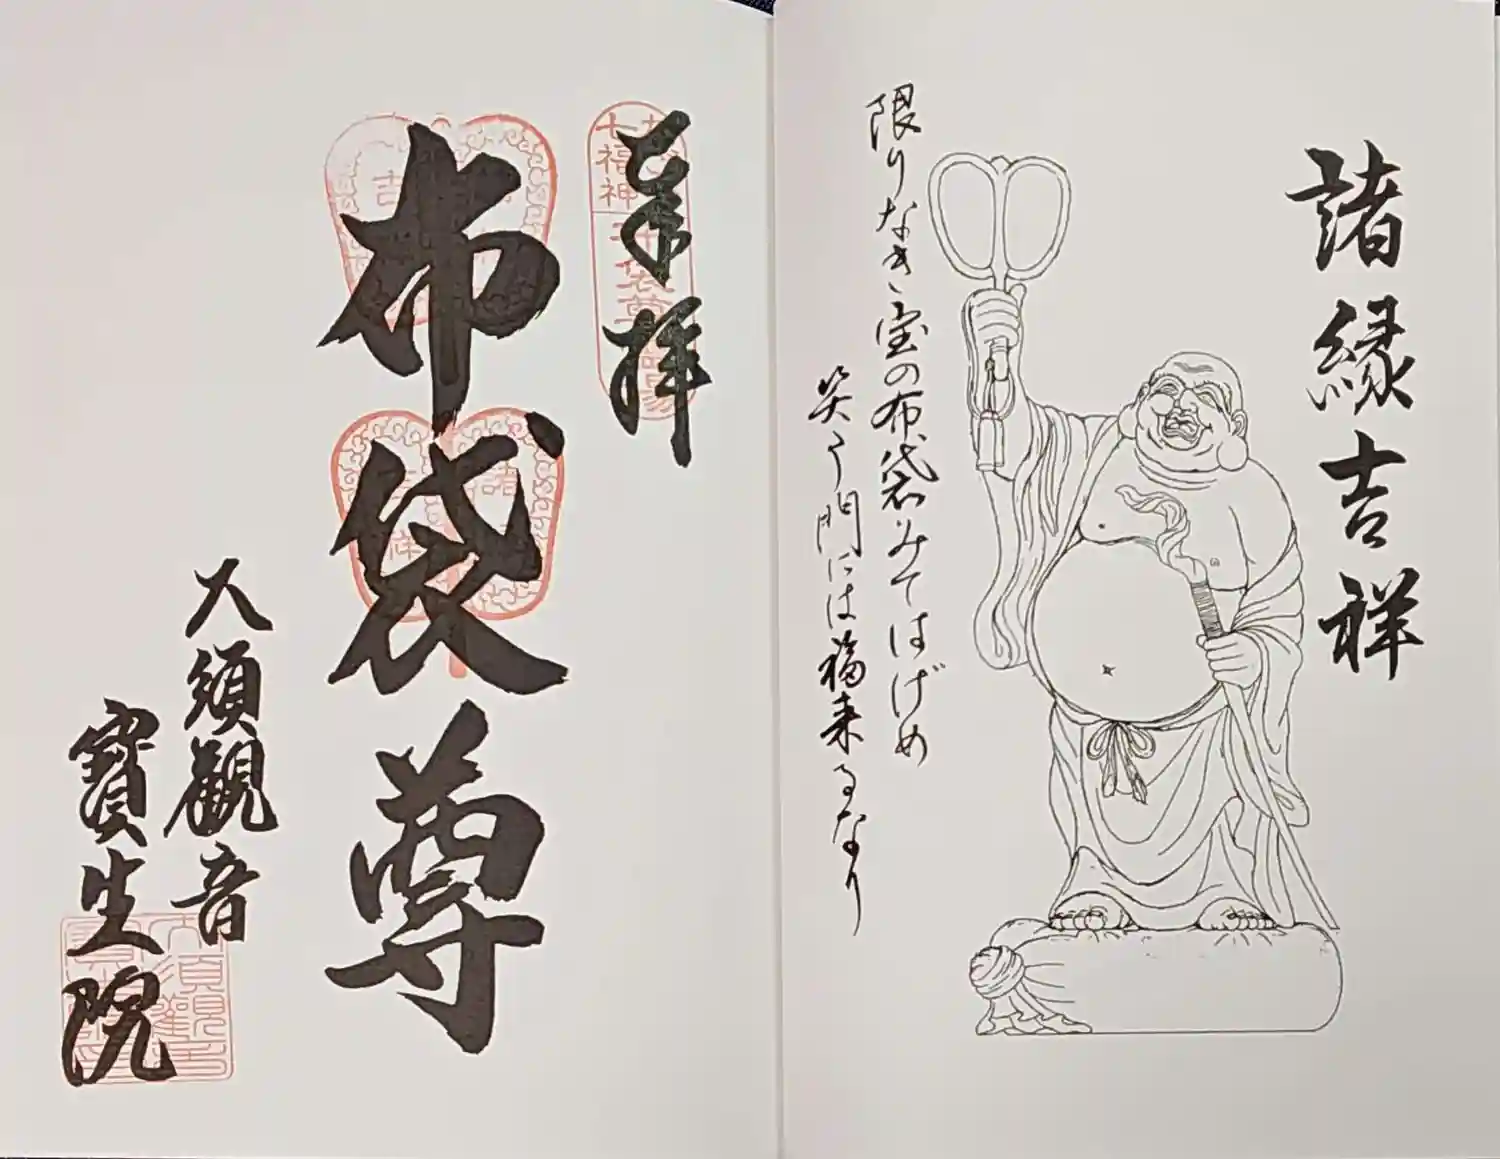 諸縁吉祥
限りなき宝の布袋みてはげめ
笑う門には福来るなり
奉拝
七福神
布袋尊
大須観音
寶生院